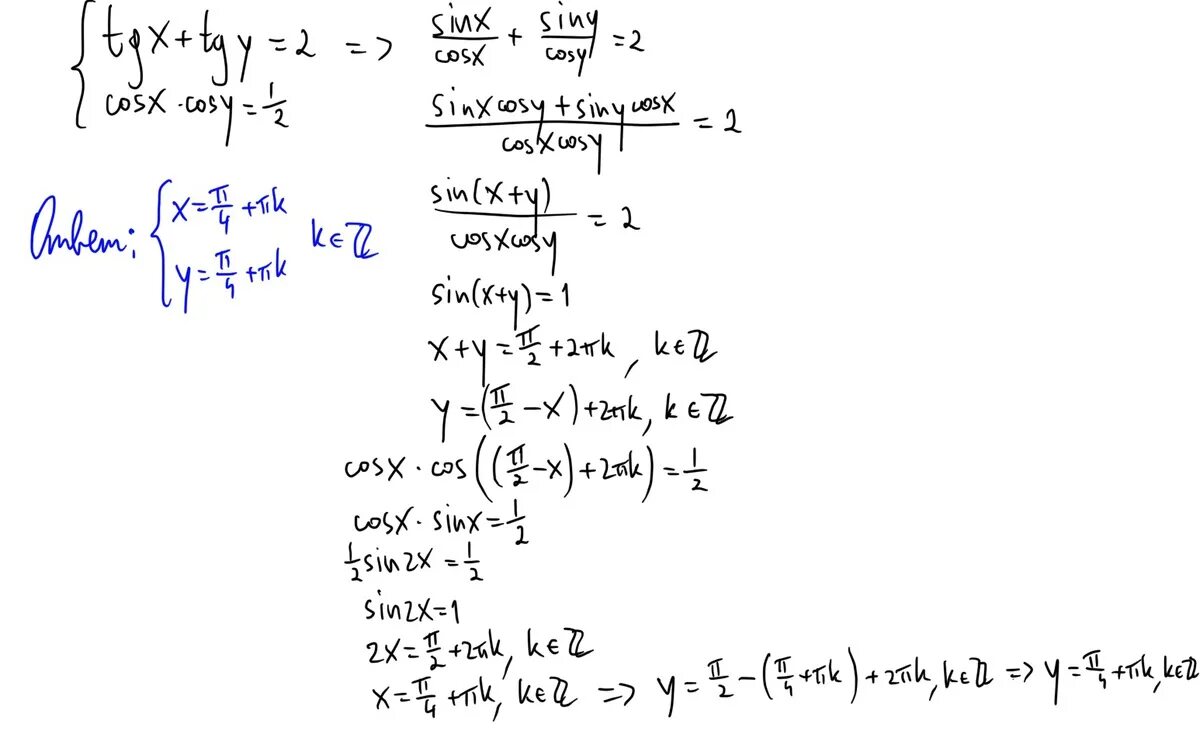 { tg x + tg y = 2 => sinx/cosx + siny/cosy = 2
cosx · cosy = 1/2
(sinx cosy + siny cosx)/(cosx cosy) = 2
sin(x+y)/(cosx cosy) = 2
sin(x+y) = 1
x+y = π/2 + 2πk, k∈ℤ
y = (π/2 - x) + 2πk, k∈ℤ
cosx · cos((π/2 - x) + 2πk) = 1/2
cosx · sinx = 1/2
1/2 sin2x = 1/2
sin2x = 1
2x = π/2 + 2πk, k∈ℤ
x = π/4 + πk, k∈ℤ => y = π/2 - (π/4 + πk) + 2πk, k∈ℤ => y = π/4 + πk, k∈ℤ
Ответ: { x = π/4 + πk
y = π/4 + πk k∈ℤ